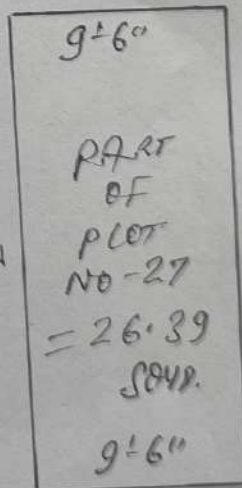 9'-6"
PART
OF
PLOT
NO-27
=26.39
SQYD.
9'-6"